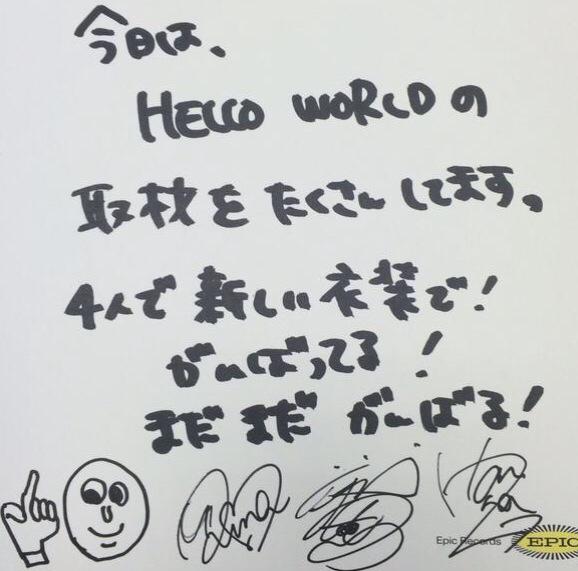 今日は、
HELLO WORLDの
取材をたくさんしてます。
4人で新しい衣装で!
がんばってる!
まだまだがんばる!
Epic Records
EPIC